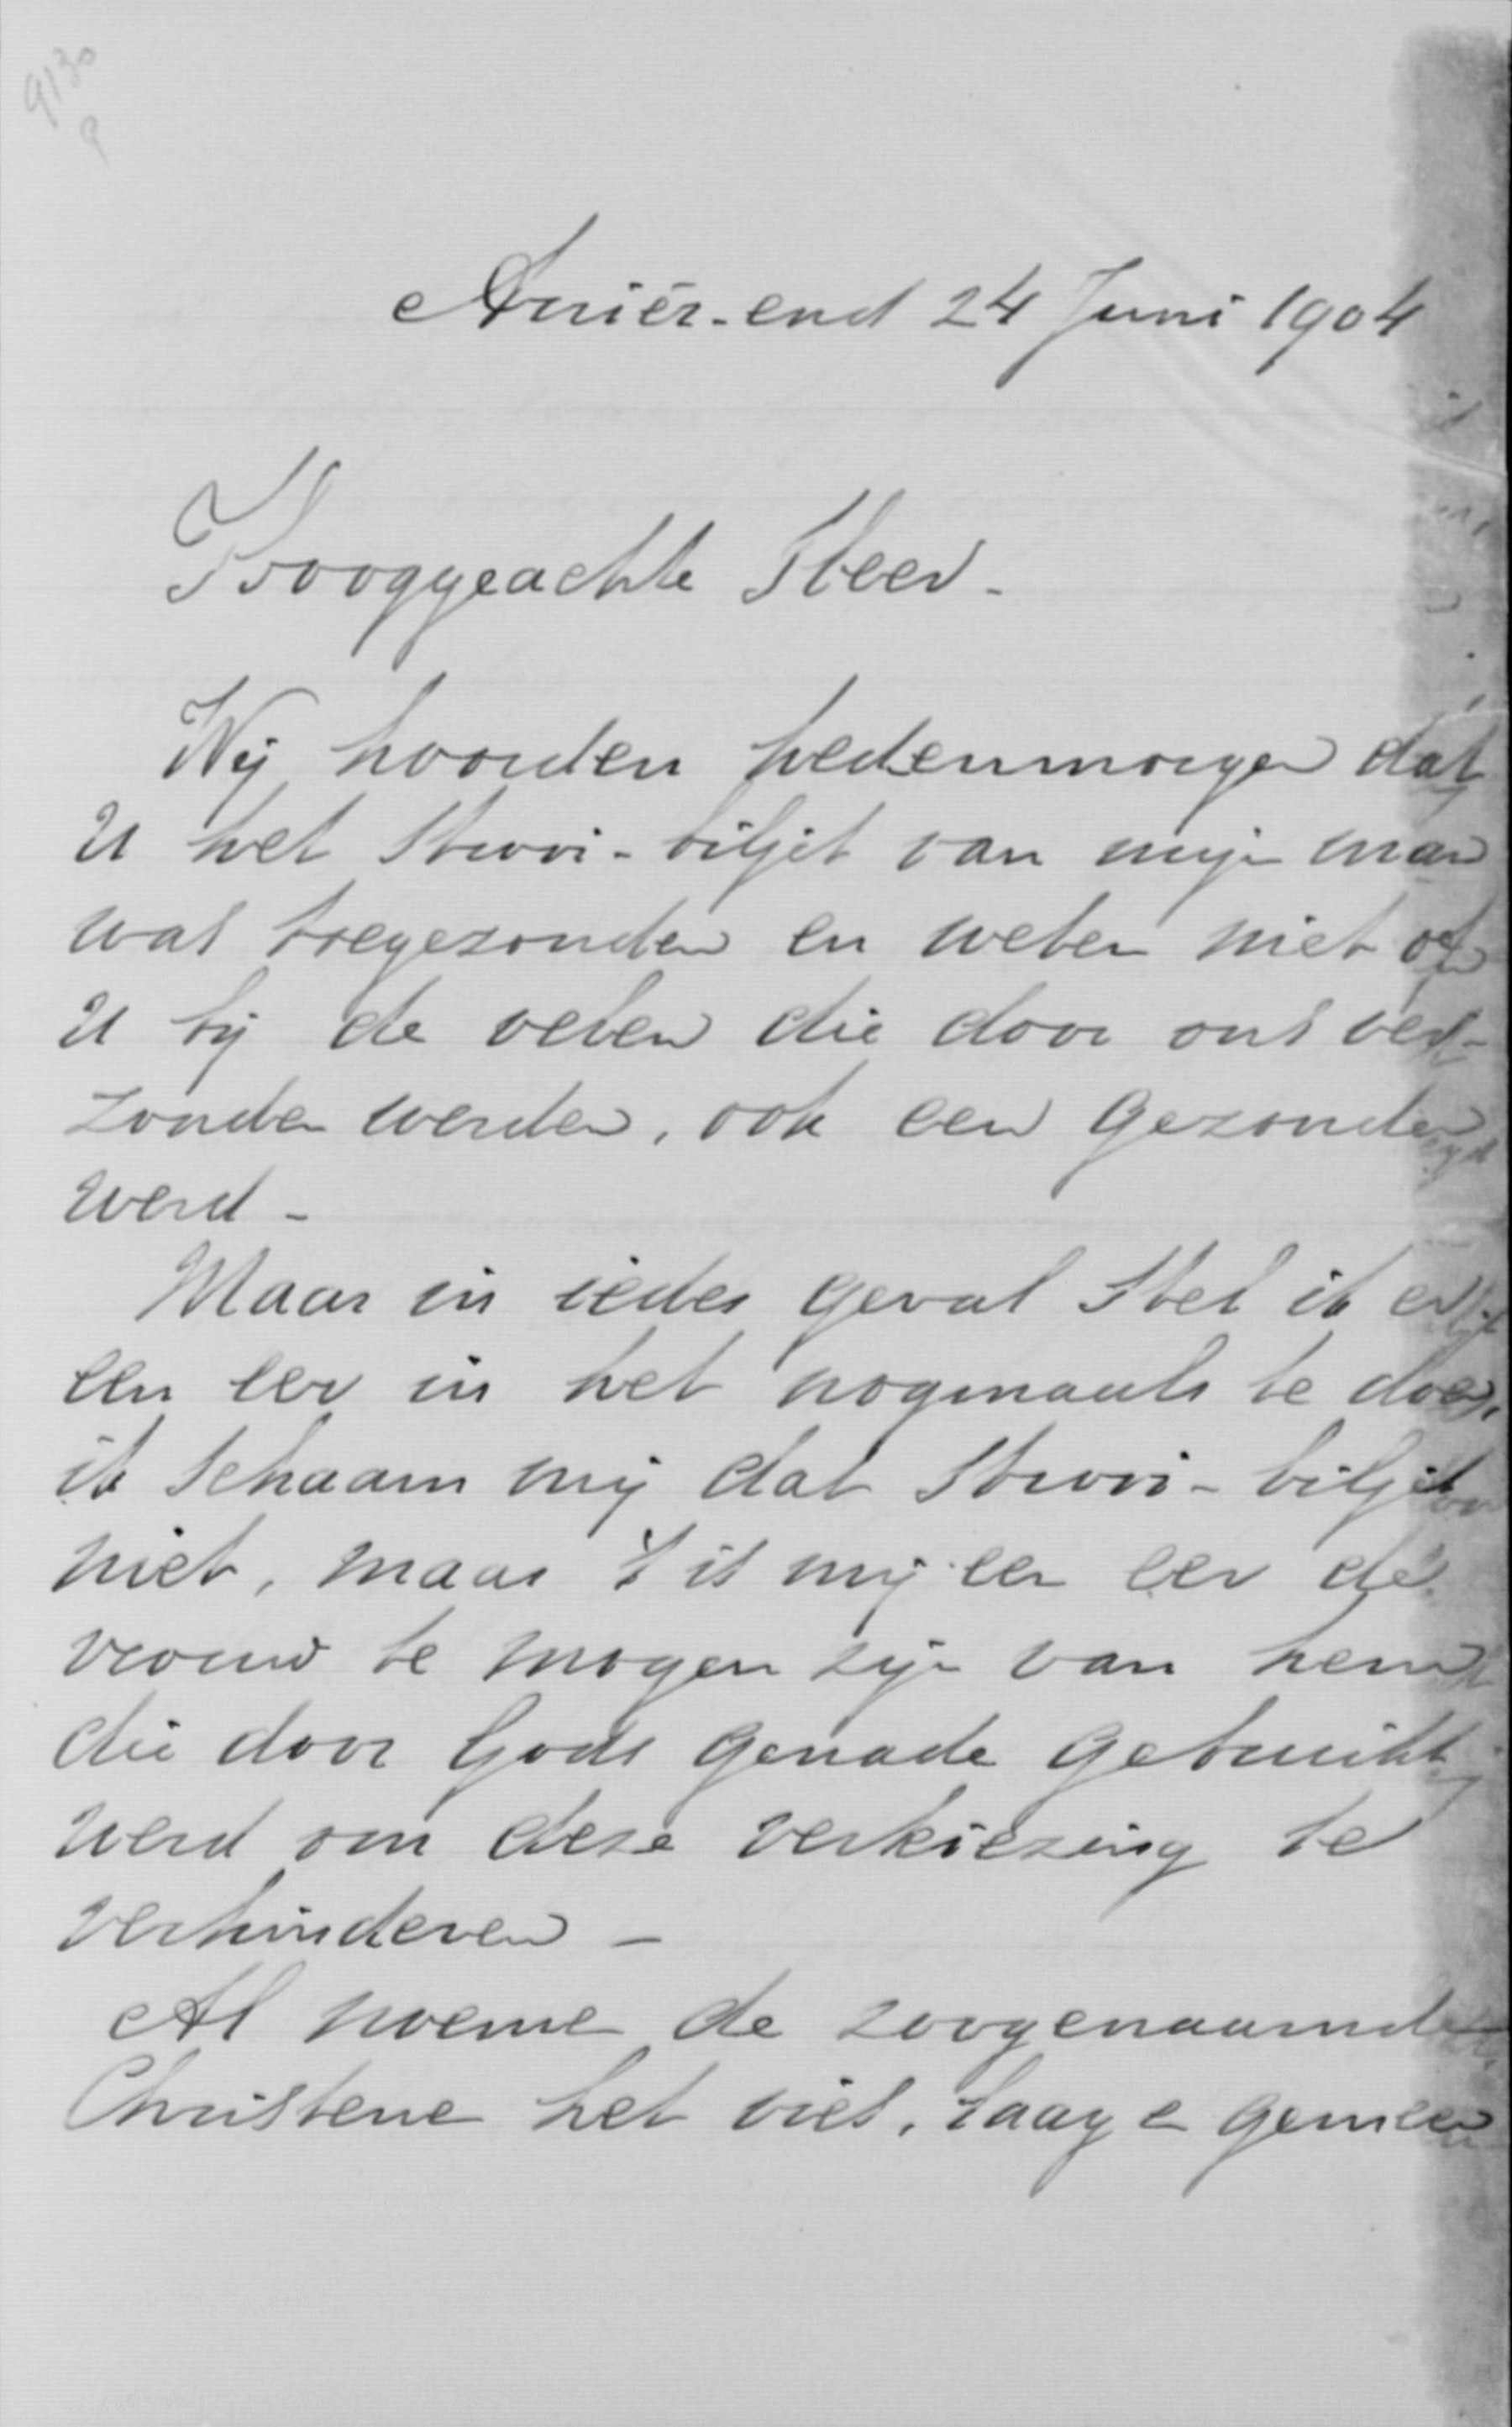 9130
Anrièr-end 24 Juni 1904
Hooggeachte Heer.
Wij hoorden hedenmorgen dat
U het strooi-biljet van mijn man
was toegezonden en weten niet of
U bij de velen die door ons ver-
zonden werden, ook een gezonden
werd -
Maar in ieder geval stel ik er
een eer in het nogmaals te doen.
ik schaam mij dat strooi-biljet
niet, maar 't is mij een eer de
vrouw te mogen zijn van hem
die door Gods genade gebruikt
werd om deze verkiezing te
verhinderen -
Al noeme de zoogenaamde
Christene het vies, laag & gemeen